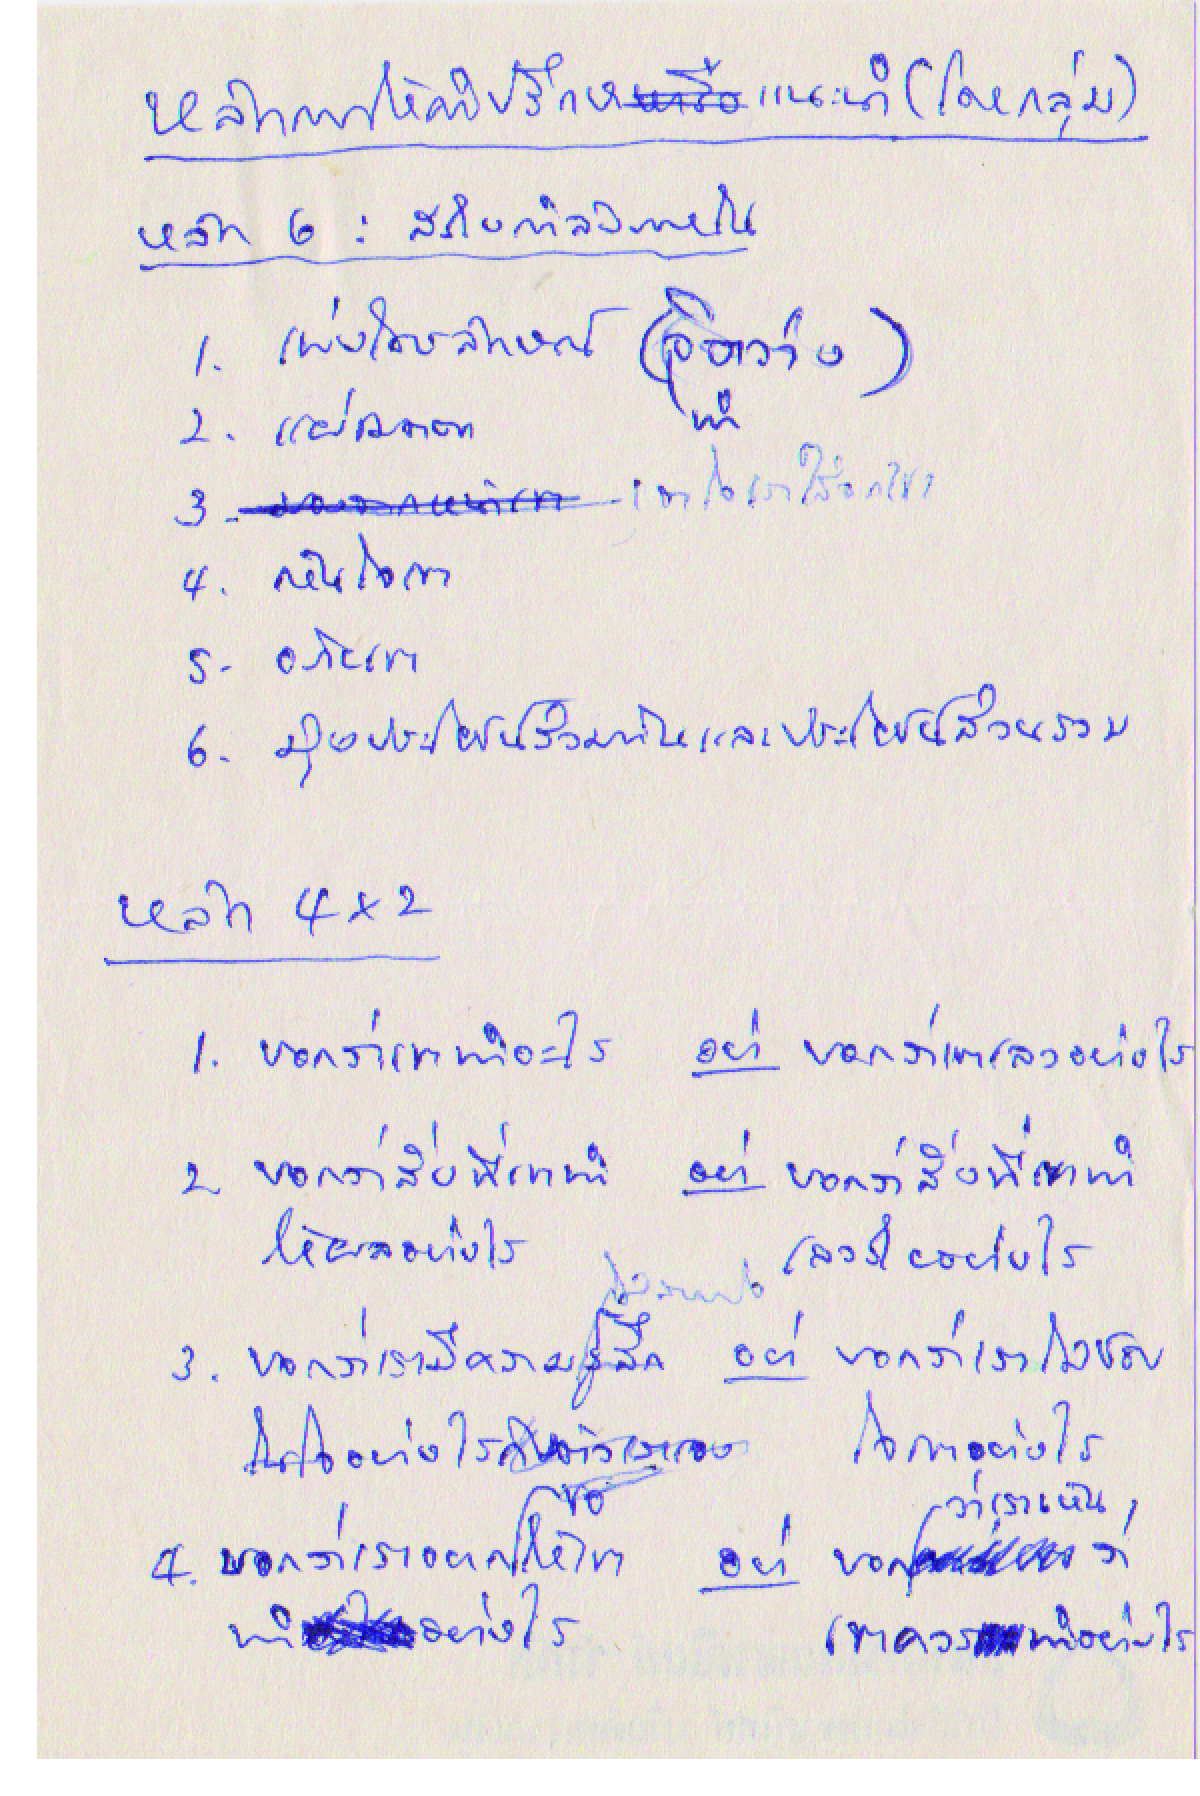 หลักการให้คำปรึกษาหรือแนะนำ (โดยกลุ่ม)
หลัก 6 : สร้างกำลังภายใน
1. เพ่งโดยลักษณ์ (จิตว่าง)
2. แผ่เมตตา ทำ
3. เอาใจเราใส่อกเขา
4. เห็นใจเขา
5. อภัยเขา
6. มุ่งประโยชน์ร่วมกันและประโยชน์ส่วนรวม
หลัก 4 x 2
1. บอกว่าเขาทำอะไร อย่า บอกว่าเขาเลวอย่างไร
2. บอกว่าสิ่งที่เขาทำ อย่า บอกว่าสิ่งที่เขาทำ
ให้ผลอย่างไร เลวร้ายอย่างไร
3. บอกว่าเรามีความรู้สึก อย่า บอกว่าเราไม่ชอบ
ในใจอย่างไร ใจเขาอย่างไร
ขอ ว่าเราเห็น
4. บอกว่าเราอยากให้เขา อย่า บอก ว่า
ทำ อย่างไร เขาควร ทำอย่างไร